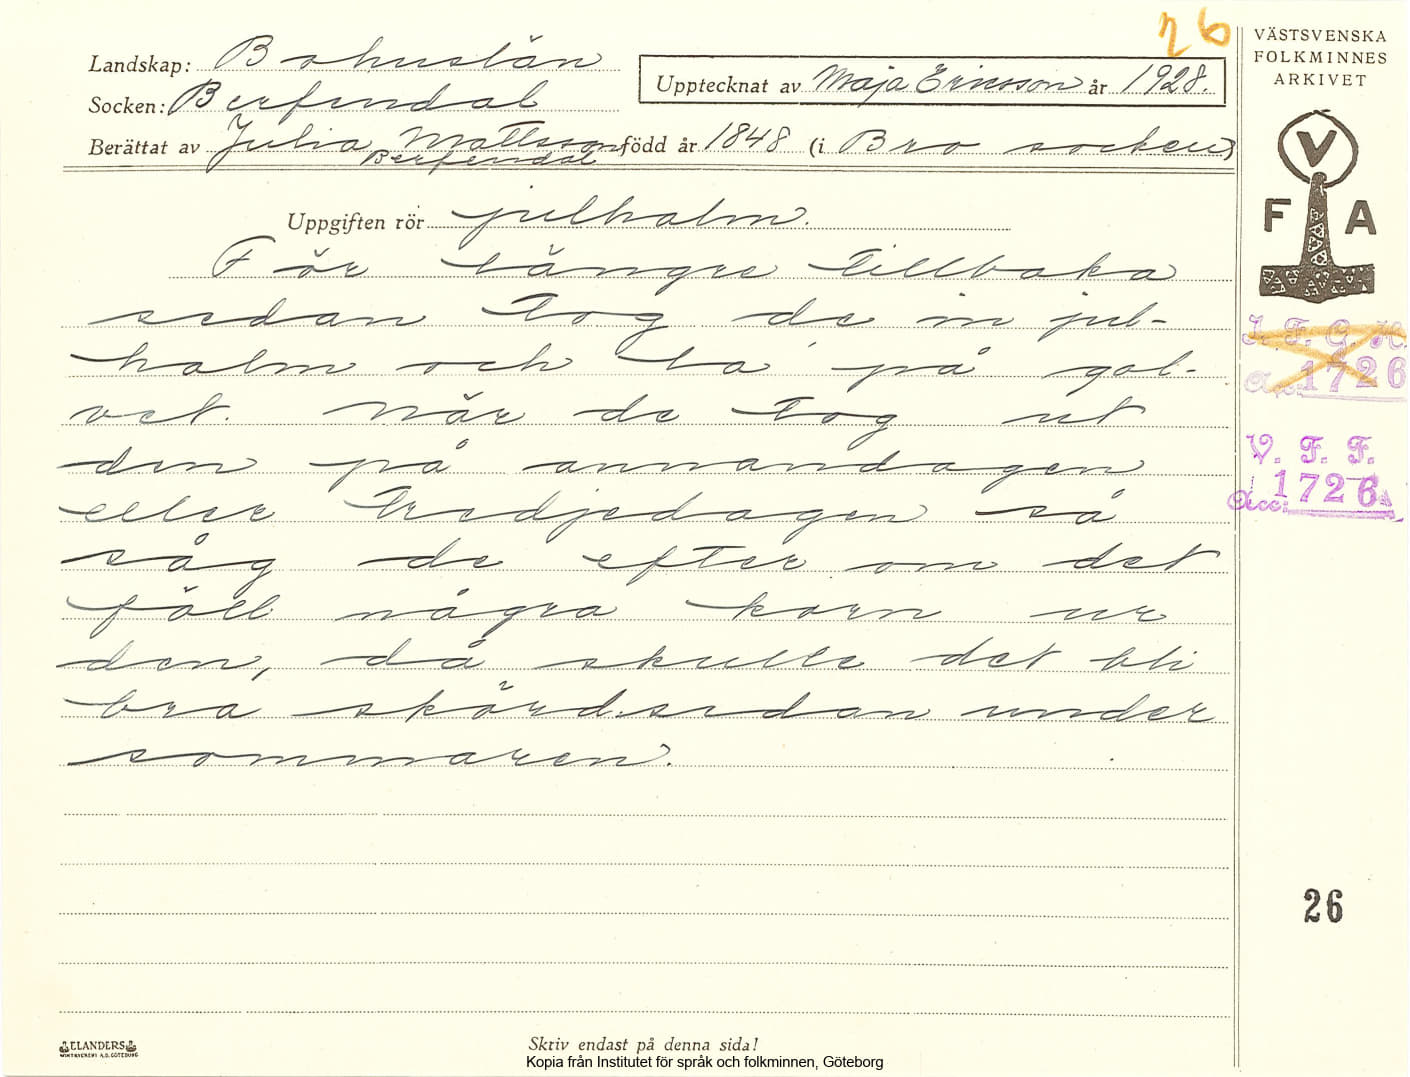 26
VÄSTSVENSKA
FOLKMINNES
ARKIVET
Landskap: Bohuslän
Upptecknat av Maja Ericsson år 1928.
Socken: Berfendal
Berättat av Julia Mattsson född år 1848 (i Bro socken)
Berfendal
V
F A
Uppgiften rör julhalm.
För längre tillbaka
sedan tog de in jul-
halm och la på gol-
vet. När de tog ut
den på annandagen
eller tredjedagen så
såg de efter om det
föll några korn ur
den, då skulle det bli
bra skörd sedan under
sommaren.
I. F. G. H.
Acc. 1726
V. F. F.
Acc: 1726
26
ELANDERS
Skriv endast på denna sida!
Kopia från Institutet för språk och folkminnen, Göteborg